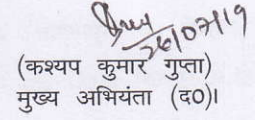 26/07/19
(कश्यप कुमार गुप्ता)
मुख्य अभियंता (द0)।